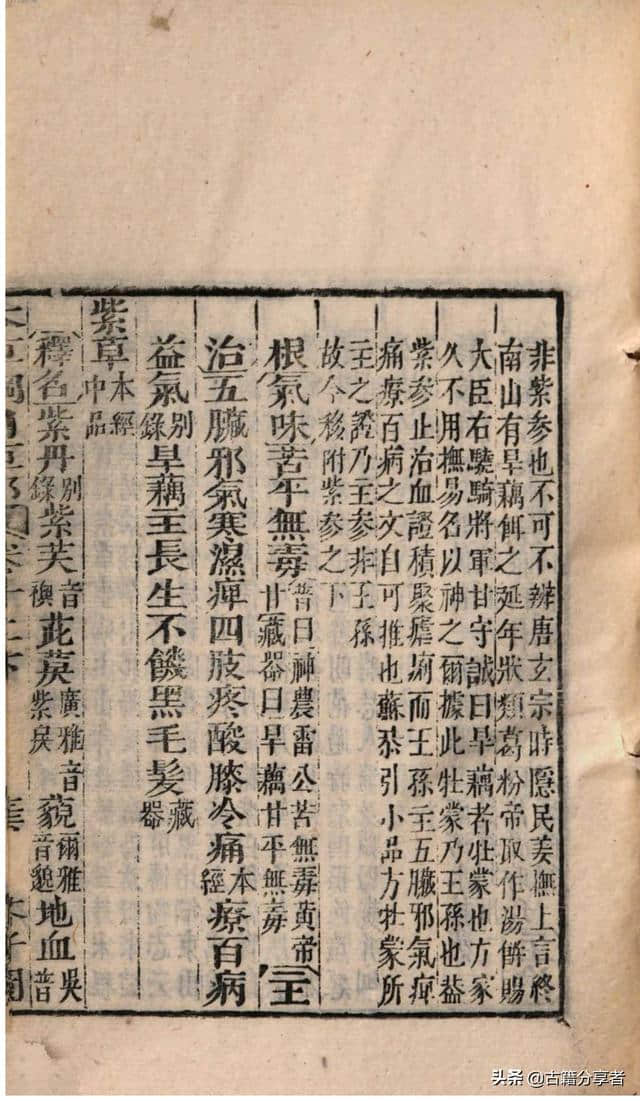 非紫參也不可不辨唐玄宗時隱民姜撫上言終
南山有旱藕餌之延年狀類葛粉帝取作湯餅賜
大臣右驍騎將軍甘守誠曰旱藕者牡蒙也方家
久不用撫易名以神之爾據此牡蒙乃王孫也蓋
紫參止治血證積聚瘧痢而王孫主五臟邪氣痺
痛療百病之文自可推也蘇恭引小品方牡蒙所
主之證乃王參非王孫
故今移附紫參之下
根氣味苦平無毒普曰神農雷公苦無毒黃帝甘藏器曰旱藕甘平無毒主
治五臟邪氣寒濕痺四肢疼酸膝冷痛本經療百病
益氣別錄旱藕主長生不饑黑毛髮藏器
紫草本經中品
釋名紫丹別錄紫芺音襖茈䓞廣雅音紫戾藐爾雅音邈地血吳普
本草綱目草部卷十二下 芥子園
头条 @古籍分享者